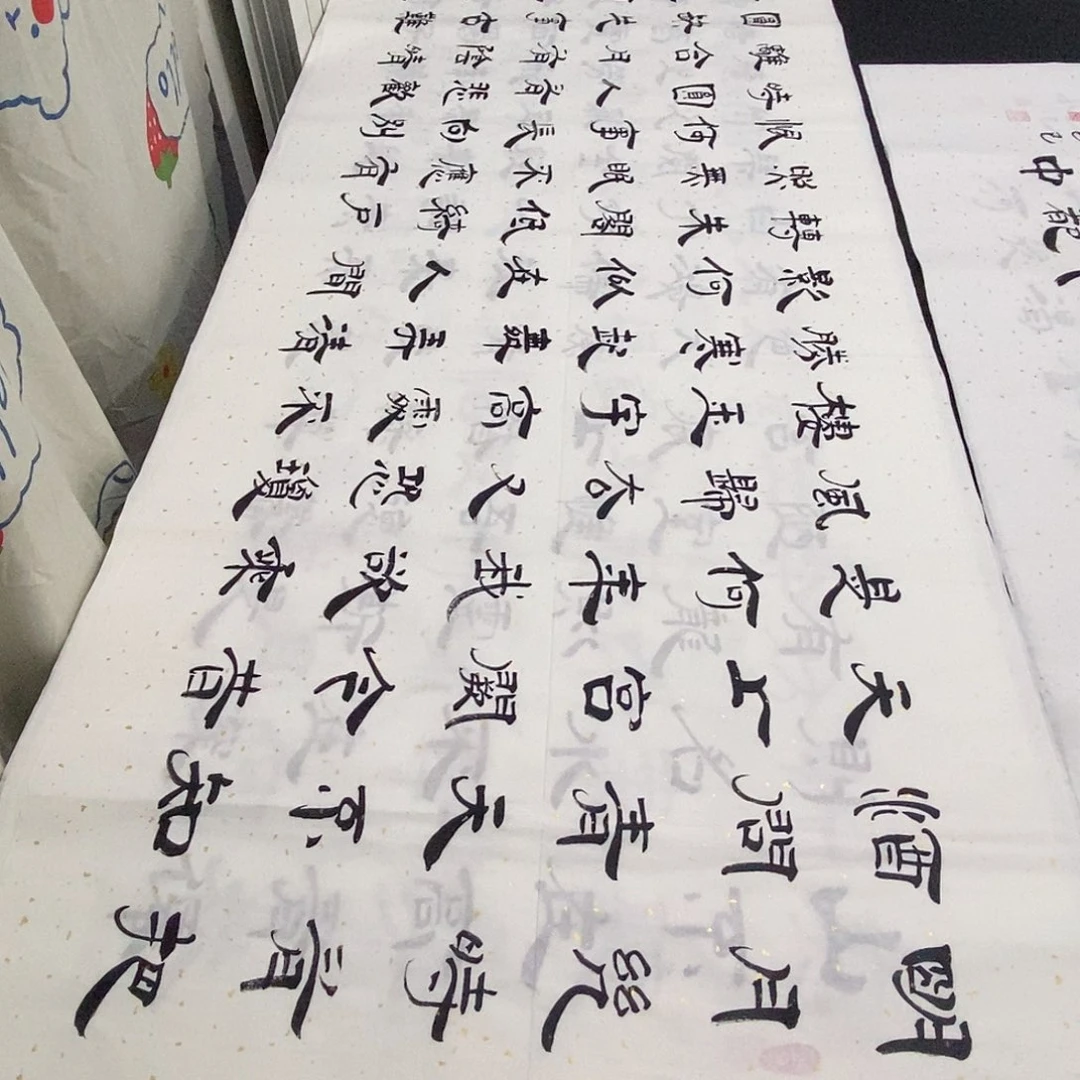 明月幾時有把
酒問青天不知
天上宮闕今昔
是何年我欲乘
風歸去又恐瓊
樓玉宇高處不
勝寒起舞弄清
影何似在人間
轉朱閣低綺戶
照無眠不應有
恨何事長向別
時圓人有悲歡
離合月有陰晴
圓缺此事古難